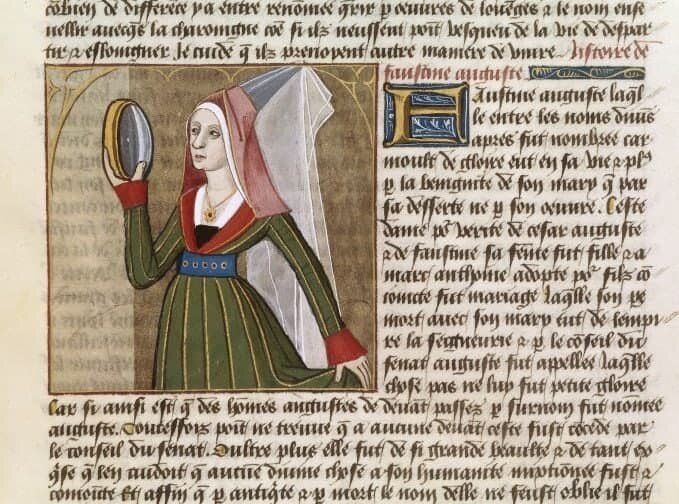 bien de differēce y a entre renōmee q̄rir p oeuvres de loēnges ⁊ le nom ense
uellir avecq̄s la charoingne cōe si ilz neussent poīt vesqueu de la vie de despar
tir ⁊ eslongner. Je cuide q̄ ilz prenoyent autre maniere de vivre. Listoire de
faustine auguste
Faustine auguste laq̄l
le entre les noms divīs
apres fut nombree car
moult de gloire eut en sa vie ⁊ pl9
p la benignite de son mary q̄ par
sa desserte ne p son oeuvre. Ceste
dame po verite de cesar auguste
⁊ de faustine sa fēme fut fille ⁊ a
marc anthoine adopte por filz cō
ioincte fut mariage laq̄lle son pe
mort avec son mary eut de lempi
re la seigneurie ⁊ p le cōseil du
senat auguste fut appellee laq̄lle
chose pas ne luy fut petite gloire
Car si ainsi est q̄ des hōmes augustes de devāt passez p surnom fut nōmee
auguste. Toutesfois poīt ne treuve q̄ a aucune devāt ceste fust cōcede par
le conseil du senat. Oultre plus elle fut de si grande beaulte ⁊ de tant
q̄ len cuidoit q̄ aucūe divine chose a son humanite
Et affin q̄ p antiq̄te ⁊ p mort le nom delle ne feust oblie il fut